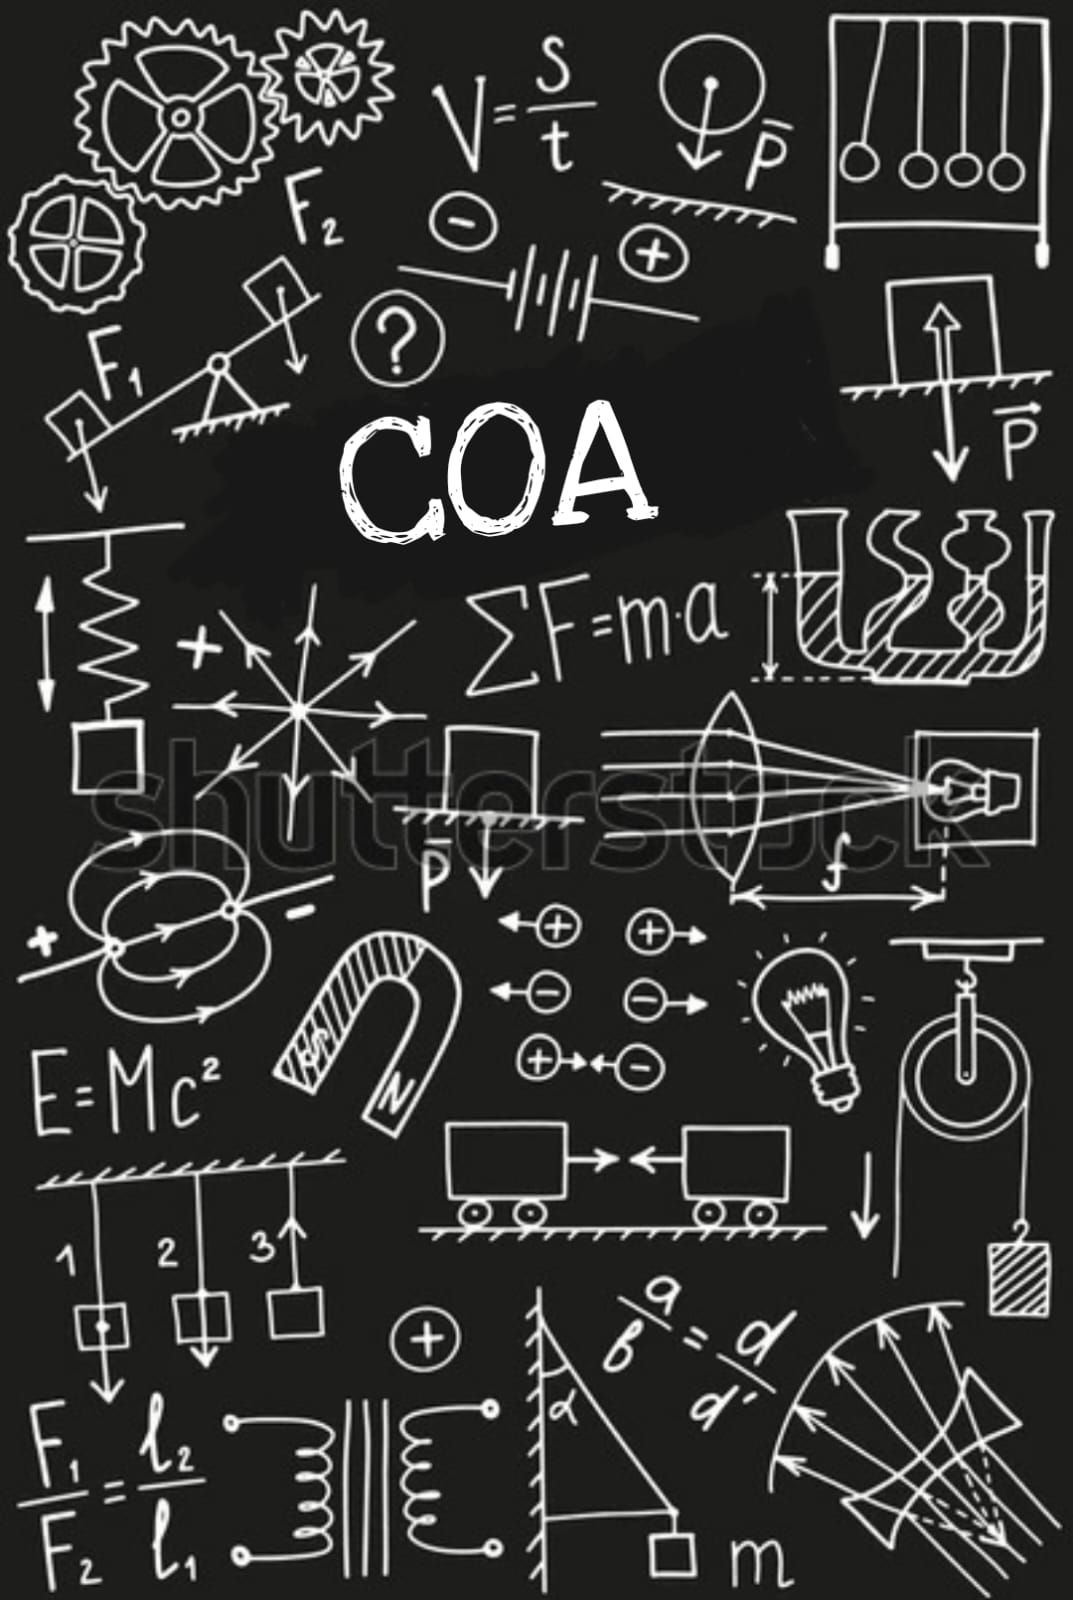 V = S/t
P̄
F₂
−
+
F₁
?
COA
P⃗
ΣF=m·a
+
shutterstock
P̄
f
+
−
+
+
−
−
+
−
S
N
E=Mc²
1
2
3
+
a/b = d/d'
α
F₁/F₂ = l₂/l₁
m